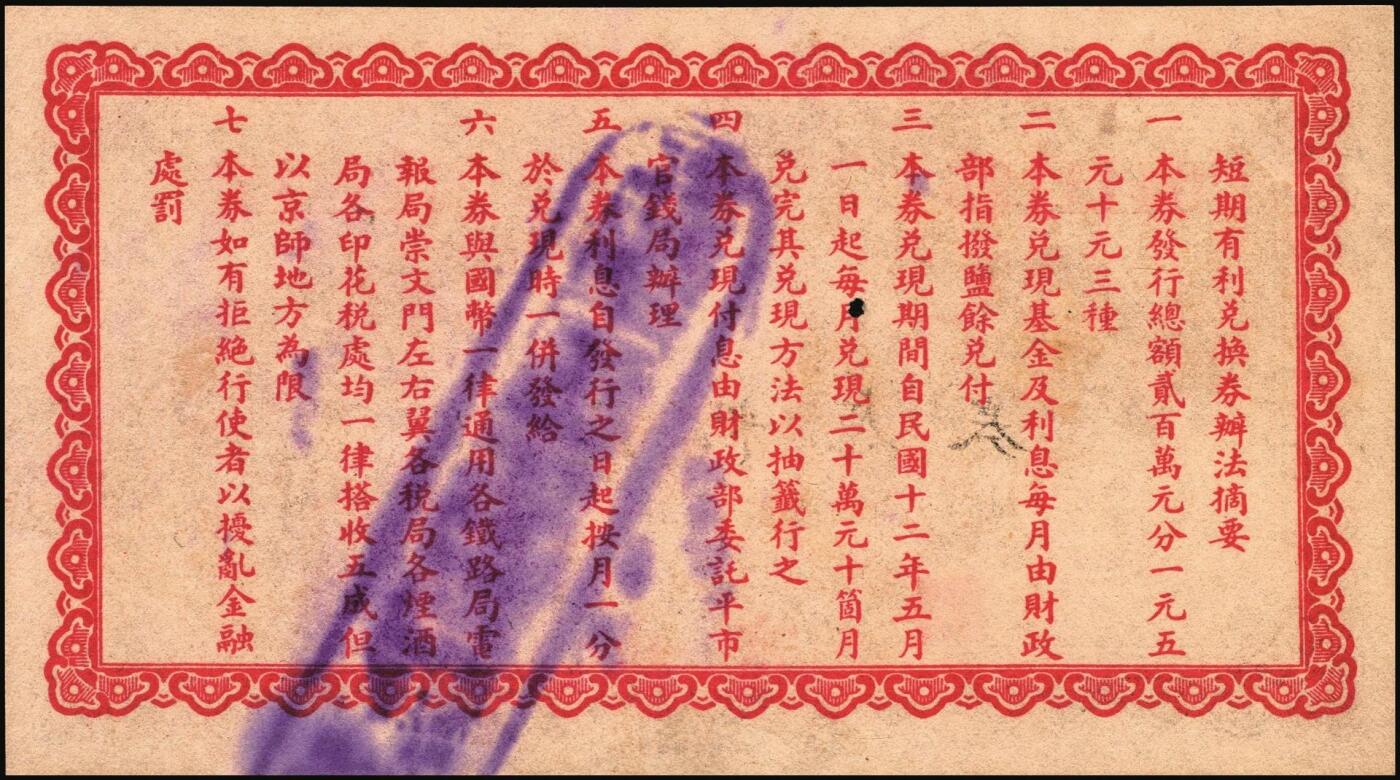 短期有利兌換券辦法摘要
一 本券發行總額貳百萬元分一元五
元十元三種
二 本券兌現基金及利息每月由財政
部指撥鹽餘兌付
三 本券兌現期間自民國十二年五月
一日起每月兌現二十萬元十箇月
兌完其兌現方法以抽籤行之
四 本券兌現付息由財政部委託平市
官錢局辦理
五 本券利息自發行之日起按月一分
於兌現時一併發給
六 本券與國幣一律通用各鐵路局電
報局崇文門左右翼各稅局各煙酒
局各印花稅處均一律搭收五成但
以京師地方為限
七 本券如有拒絕行使者以擾亂金融
處罰